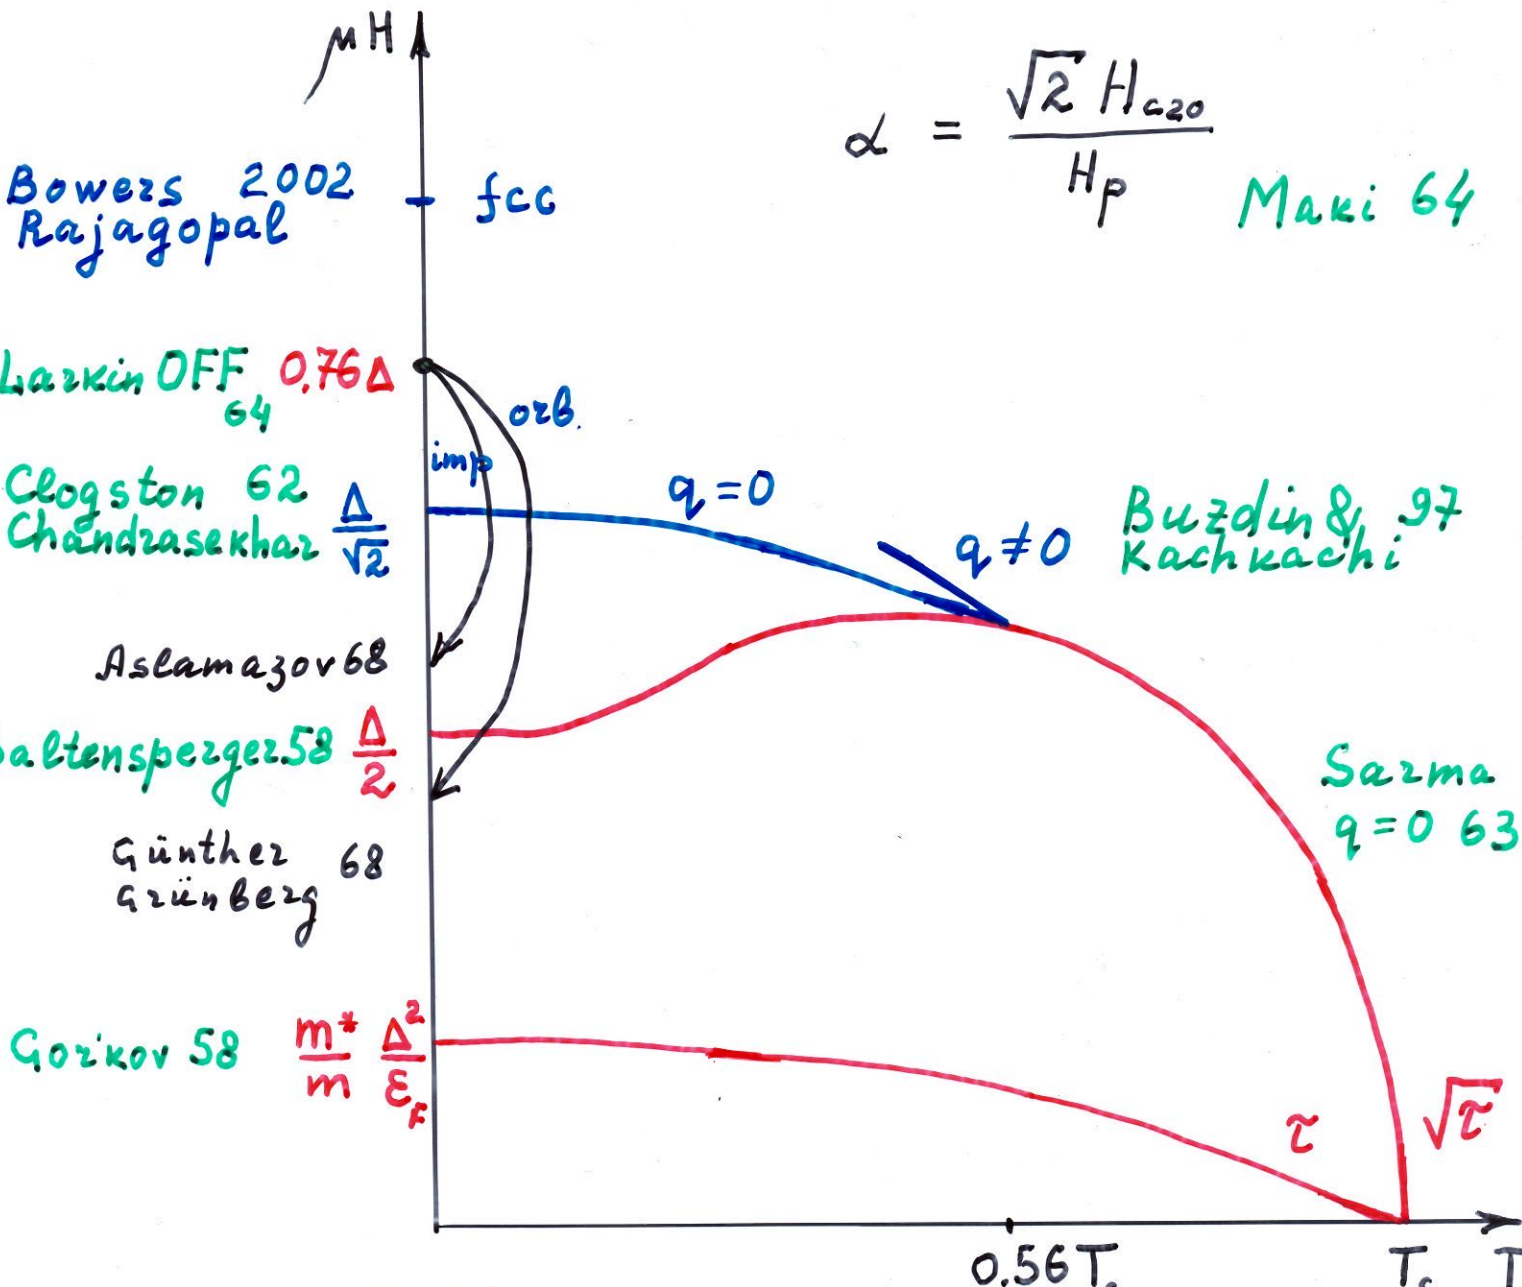 μH
α = √2 Hc20 / Hp
Maki 64
Bowers 2002
Rajagopal
fcc
Larkin OFF 0,76Δ
64
orb.
imp
Clogston 62
Chandrasekhar Δ/√2
q = 0
q ≠ 0
Buzdin & 97
Kachkachi
Aslamazov 68
altensperger 58 Δ/2
Sarma
q = 0 63
Günther 68
Grünberg
Gor'kov 58 m*/m Δ²/ε_F
τ
√τ
0.56T
Tc
T